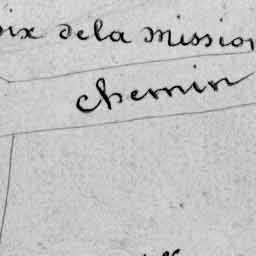 oix de la Mission
chemin